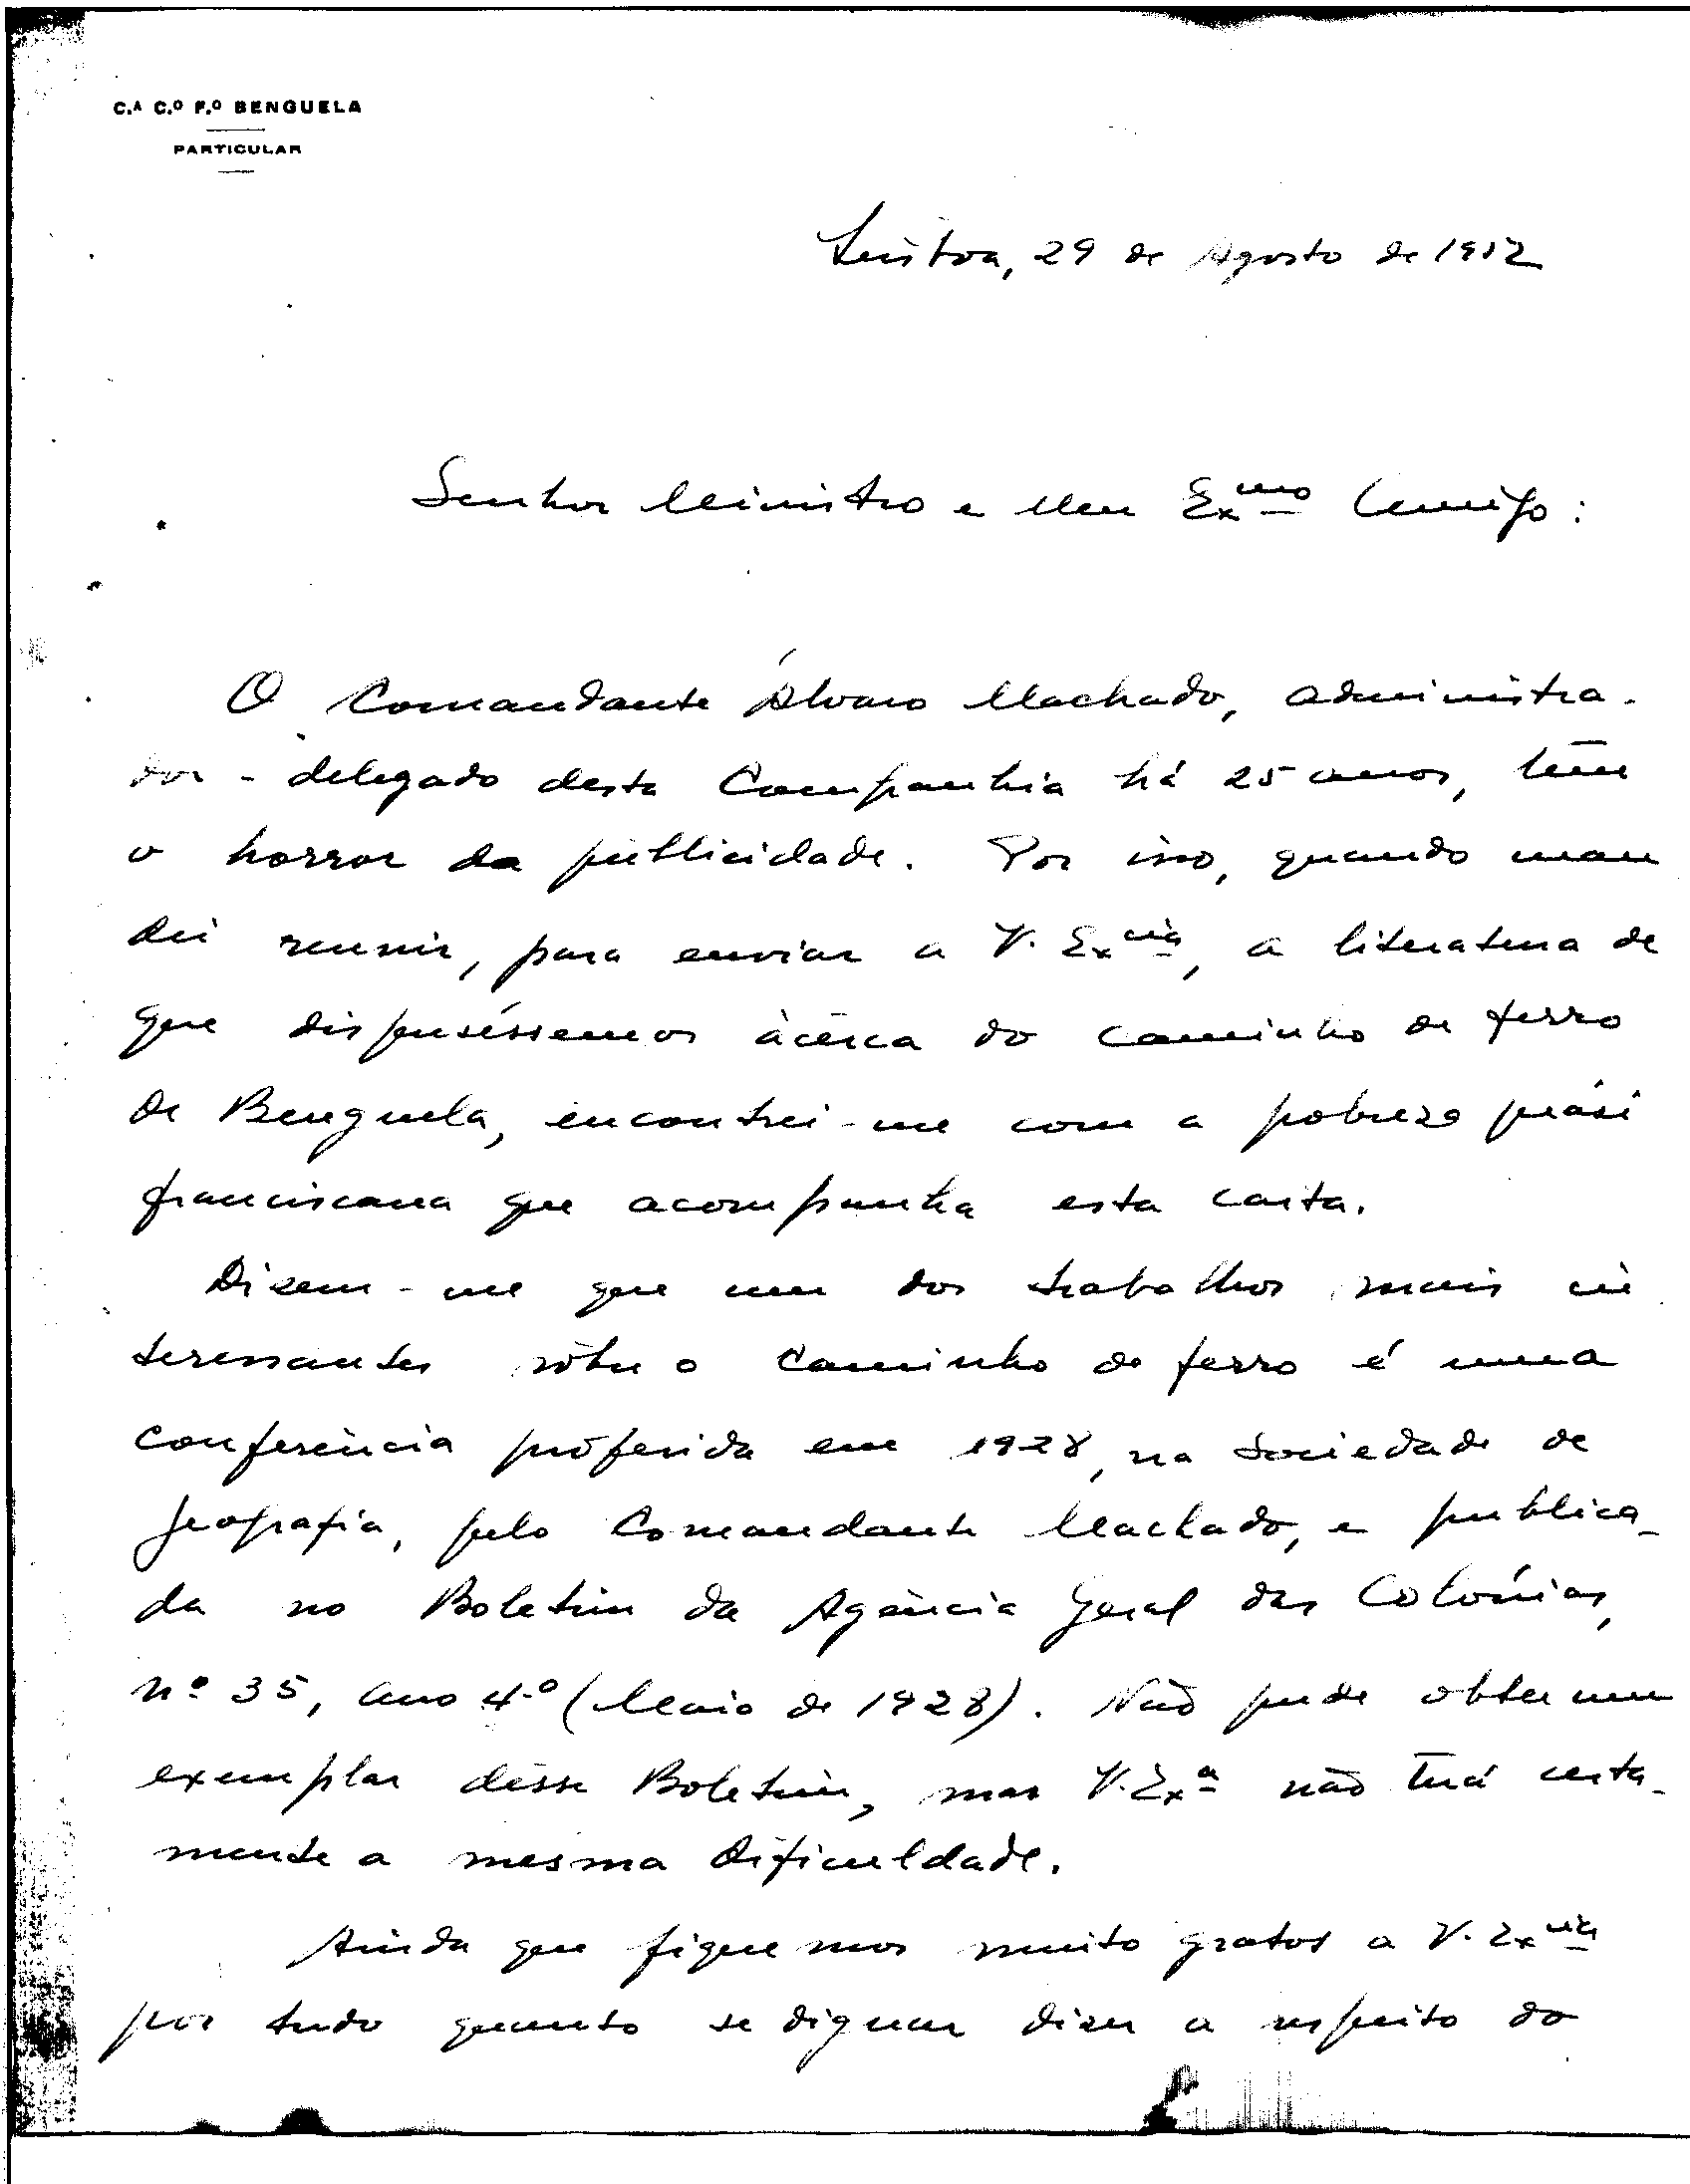 C.ᴬ C.º F.º BENGUELA
PARTICULAR
Lisboa, 29 de Agosto de
Senhor Ministro e Meu Exmo Amigo:
O Comandante Álvaro Machado, administra-
dor-delegado desta Companhia há 25 anos, têm
o horror da publicidade. Por isso, quando man
dei reunir, para enviar a V. Excia, a literatura de
que dispuséssemos àcêrca do caminho de ferro
de Benguela, encontrei-me com a pobreza
franciscana que acompanha esta carta.
Dizem-me que um dos trabalhos mais in
teressantes sôbre o caminho de ferro é uma
conferência proferida em 1928, na Sociedade de
Geografia, pelo Comandante Machado, e publica-
da no Boletim da Agência Geral das Colónias,
nº 35, ano 4.º (Maio de 1928). Não pude obter um
exemplar dêsse Boletim, mas V. Exª não terá certa-
mente a mesma dificuldade.
Ainda que fiquemos muito gratos a V. Excia
por tudo quanto se dignar dizer a respeito do